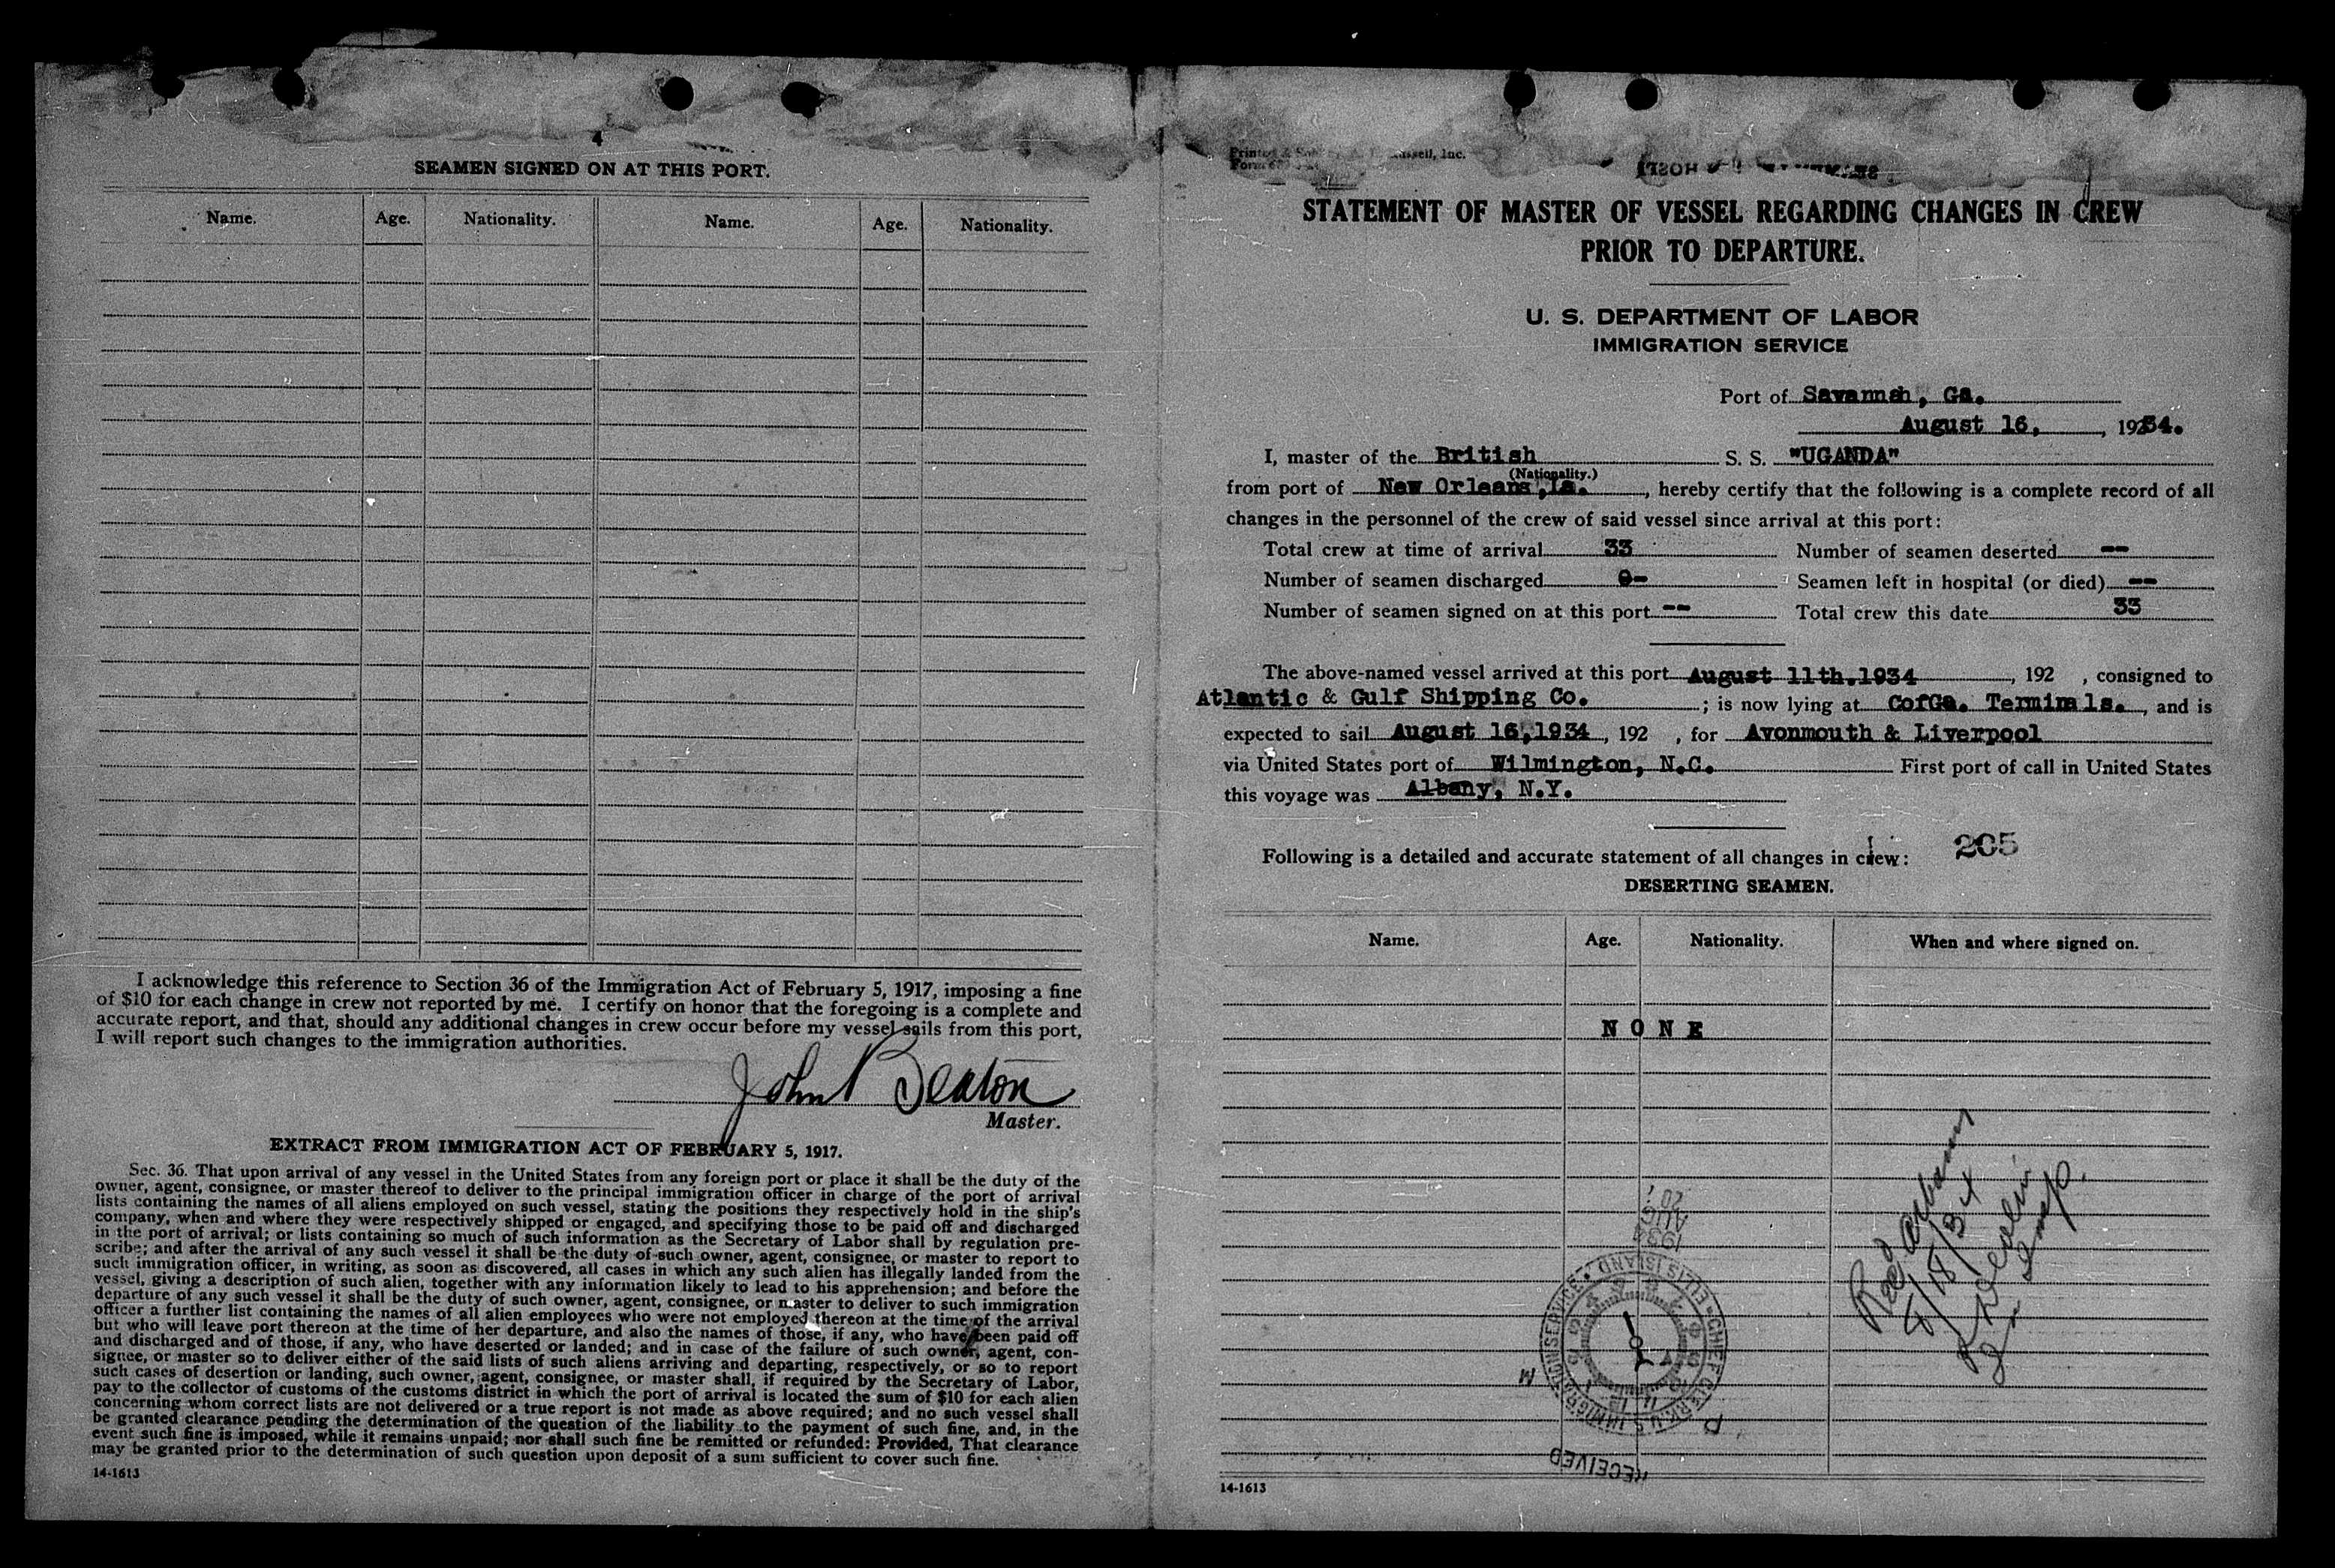 4
SEAMEN SIGNED ON AT THIS PORT.
Name. Age. Nationality. Name. Age. Nationality.
I acknowledge this reference to Section 36 of the Immigration Act of February 5, 1917, imposing a fine
of $10 for each change in crew not reported by me. I certify on honor that the foregoing is a complete and
accurate report, and that, should any additional changes in crew occur before my vessel sails from this port,
I will report such changes to the immigration authorities.
John Beaton
Master.
EXTRACT FROM IMMIGRATION ACT OF FEBRUARY 5, 1917.
Sec. 36. That upon arrival of any vessel in the United States from any foreign port or place it shall be the duty of the
owner, agent, consignee, or master thereof to deliver to the principal immigration officer in charge of the port of arrival
lists containing the names of all aliens employed on such vessel, stating the positions they respectively hold in the ship's
company, when and where they were respectively shipped or engaged, and specifying those to be paid off and discharged
in the port of arrival; or lists containing so much of such information as the Secretary of Labor shall by regulation pre-
scribe; and after the arrival of any such vessel it shall be the duty of such owner, agent, consignee, or master to report to
such immigration officer, in writing, as soon as discovered, all cases in which any such alien has illegally landed from the
vessel, giving a description of such alien, together with any information likely to lead to his apprehension; and before the
departure of any such vessel it shall be the duty of such owner, agent, consignee, or master to deliver to such immigration
officer a further list containing the names of all alien employees who were not employed thereon at the time of the arrival
but who will leave port thereon at the time of her departure, and also the names of those, if any, who have been paid off
and discharged and of those, if any, who have deserted or landed; and in case of the failure of such owner, agent, con-
signee, or master so to deliver either of the said lists of such aliens arriving and departing, respectively, or so to report
such cases of desertion or landing, such owner, agent, consignee, or master shall, if required by the Secretary of Labor,
pay to the collector of customs of the customs district in which the port of arrival is located the sum of $10 for each alien
concerning whom correct lists are not delivered or a true report is not made as above required; and no such vessel shall
be granted clearance pending the determination of the question of the liability to the payment of such fine, and, in the
event such fine is imposed, while it remains unpaid; nor shall such fine be remitted or refunded: Provided, That clearance
may be granted prior to the determination of such question upon deposit of a sum sufficient to cover such fine.
14-1613
Printed & Inc.
Form
STATEMENT OF MASTER OF VESSEL REGARDING CHANGES IN CREW
PRIOR TO DEPARTURE.
U. S. DEPARTMENT OF LABOR
IMMIGRATION SERVICE
Port of Savannah, Ga.
August 16, , 1934.
I, master of the British S. S. "UGANDA"
(Nationality.)
from port of New Orleans, La. , hereby certify that the following is a complete record of all
changes in the personnel of the crew of said vessel since arrival at this port:
Total crew at time of arrival 33 Number of seamen deserted --
Number of seamen discharged 0- Seamen left in hospital (or died) --
Number of seamen signed on at this port -- Total crew this date 33
The above-named vessel arrived at this port August 11th.1934 , 192 , consigned to
Atlantic & Gulf Shipping Co. ; is now lying at CofGa. Terminals. , and is
expected to sail August 16,1934 , 192 , for Avonmouth & Liverpool
via United States port of Wilmington, N.C. First port of call in United States
this voyage was Albany, N.Y.
Following is a detailed and accurate statement of all changes in crew: 205
DESERTING SEAMEN.
Name. Age. Nationality. When and where signed on.
NONE
8/18/34
1934
AUG
20
CHIEF CLERK, U.S. IMMIGRATION SERVICE ELLIS ISLAND
M
P
RECEIVED
14-1613